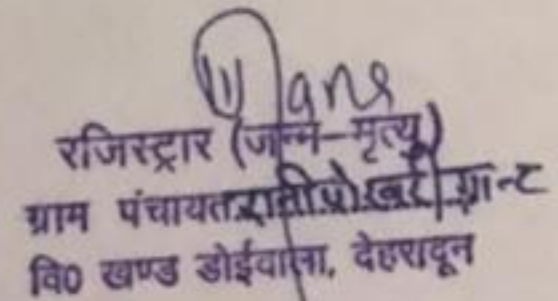 रजिस्ट्रार (जन्म–मृत्यु)
ग्राम पंचायत रानीपोखरी ग्रान्ट
वि0 खण्ड डोईवाला, देहरादून